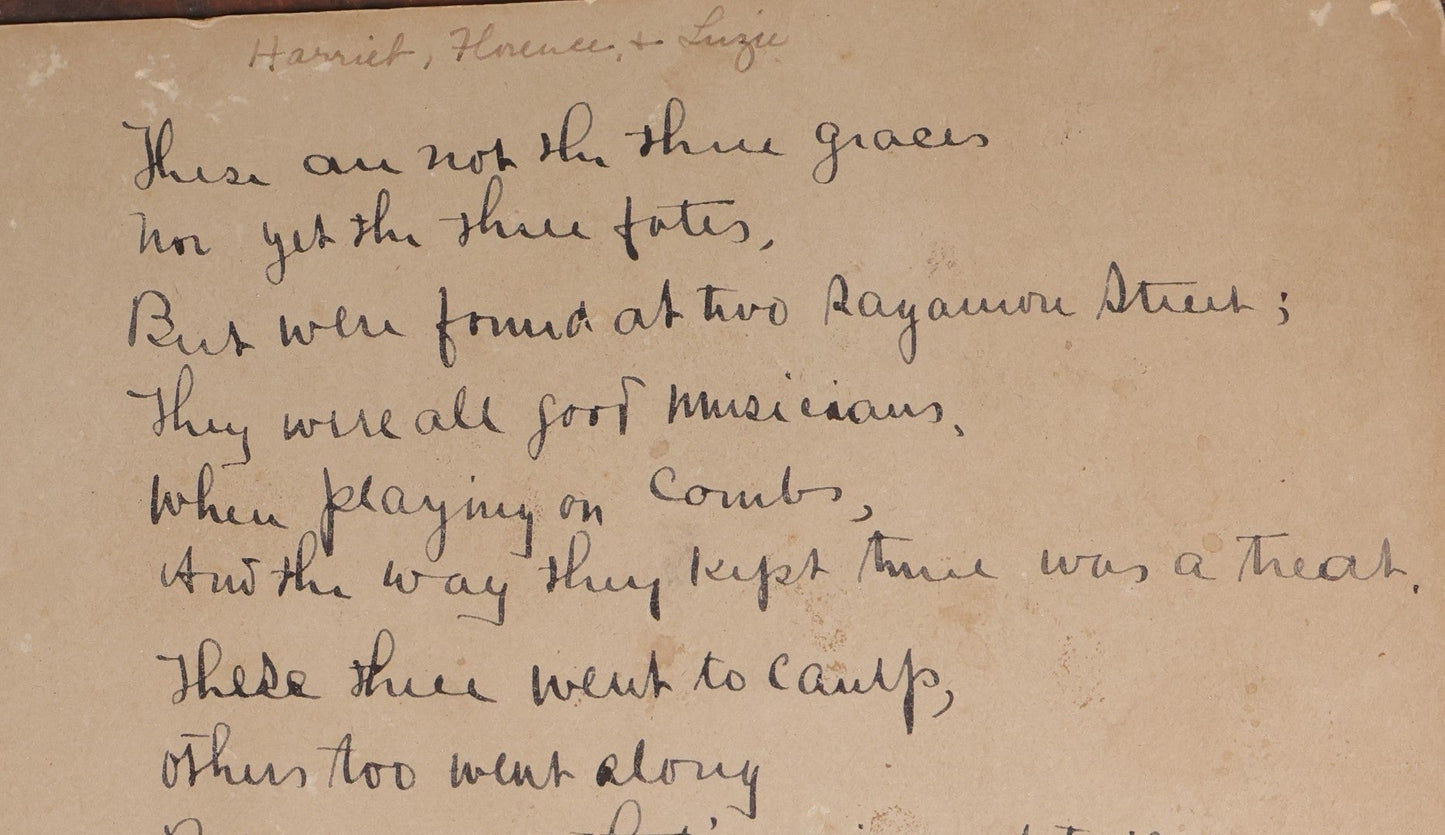 Harriet, Florence, + Luzie
These are not the three graces
Nor yet the three fates,
But were found at two Sagamore Street;
They were all good musicians,
When playing on Combs,
And the way they kept time was a treat.
These three went to Camp,
Others too went along